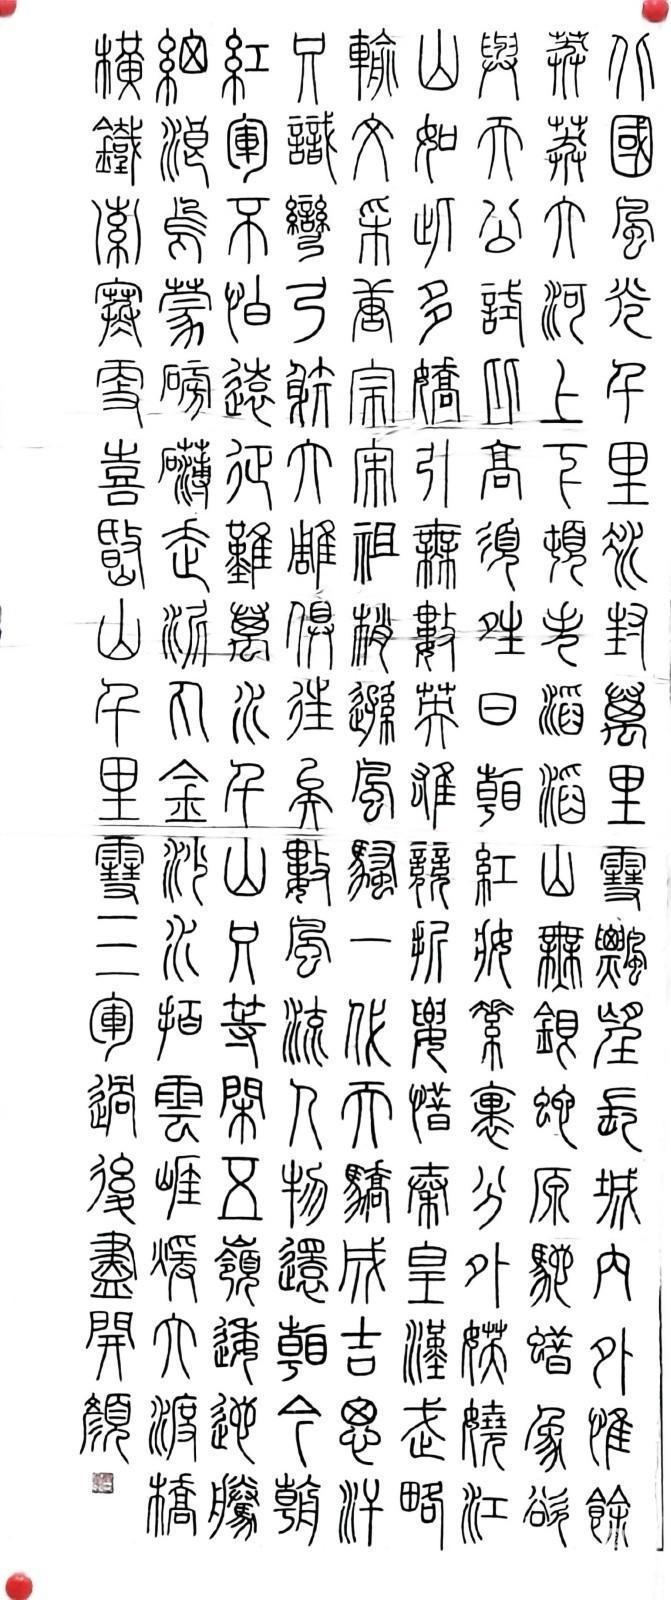 北國風光千里冰封萬里雪飄望長城內外惟餘
莽莽大河上下頓失滔滔山舞銀蛇原馳蠟象欲
與天公試比高須晴日看紅妝素裹分外妖嬈江
山如此多嬌引無數英雄競折腰惜秦皇漢武略
輸文采唐宗宋祖稍遜風騷一代天驕成吉思汗
只識彎弓射大雕俱往矣數風流人物還看今朝
紅軍不怕遠征難萬水千山只等閑五嶺逶迤騰
細浪烏蒙磅礴走泥丸金沙水拍雲崖暖大渡橋
橫鐵索寒更喜岷山千里雪三軍過後盡開顏